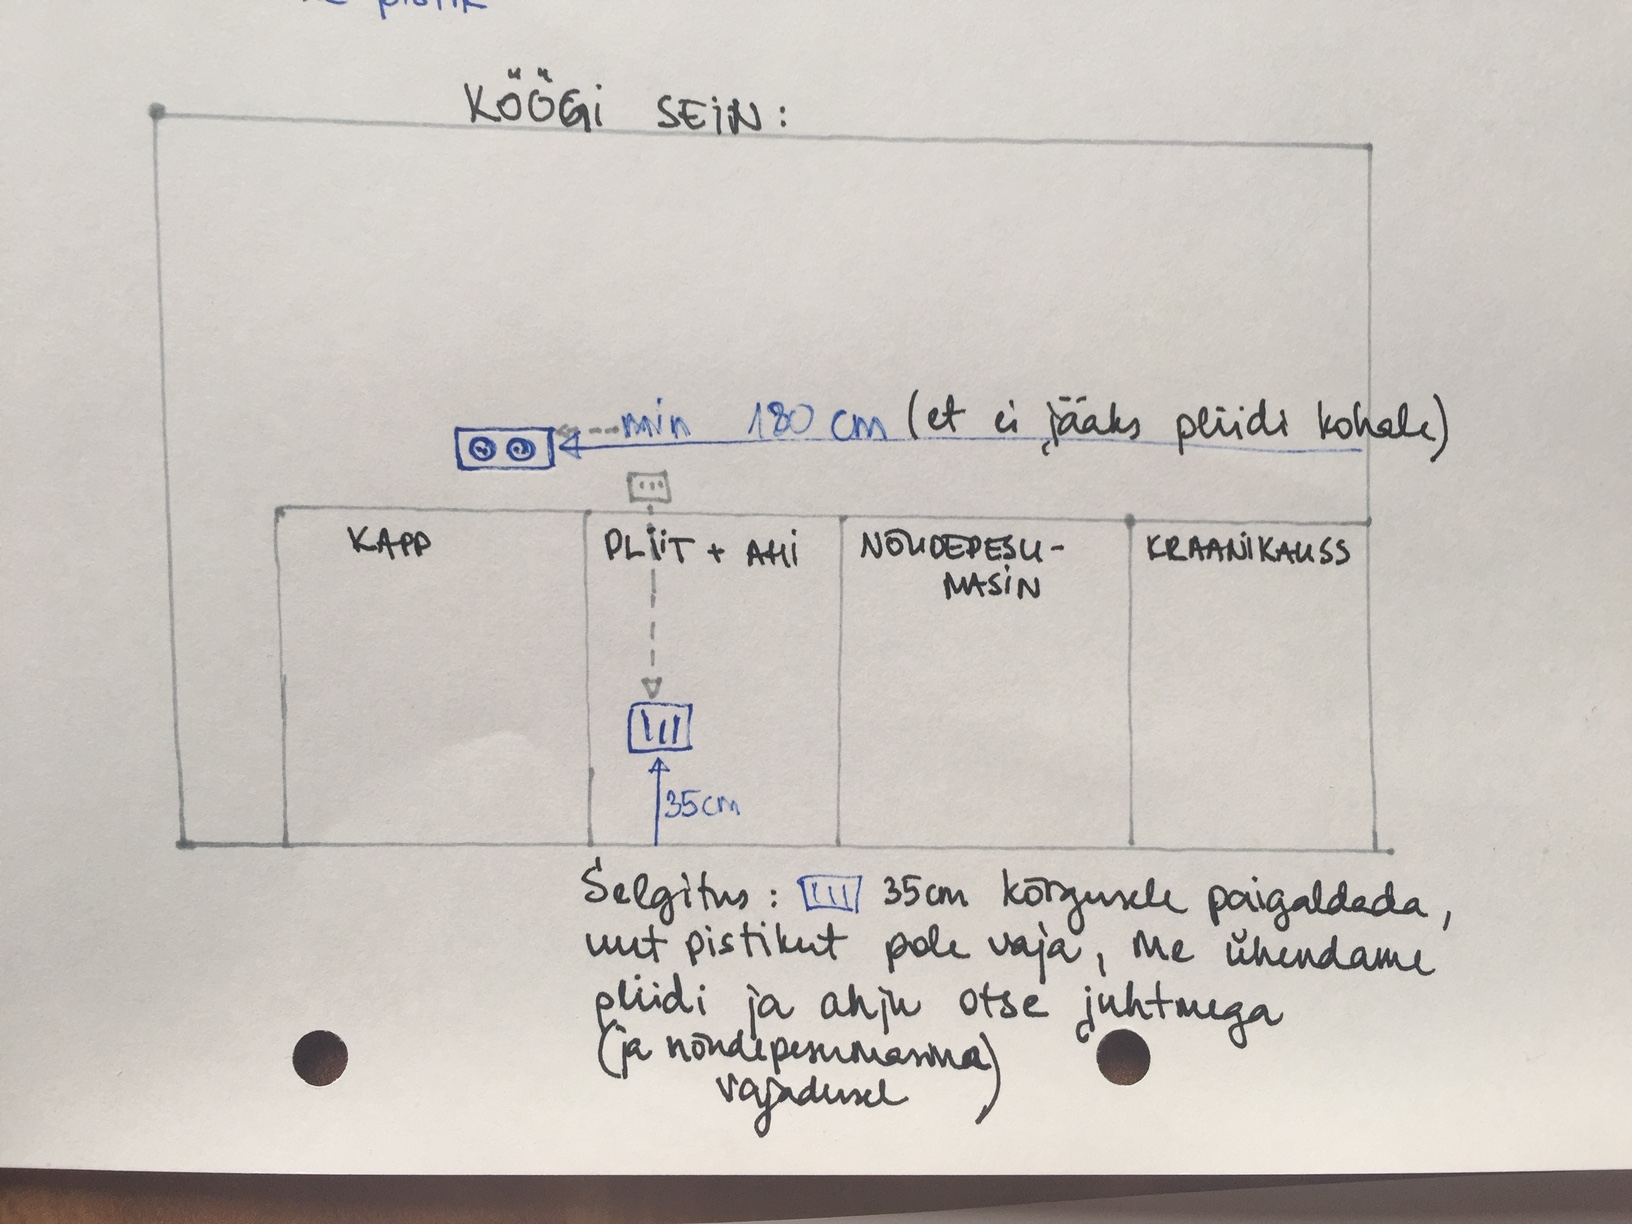 pistik
KÖÖGI SEIN:
min 180 cm (et ei jääks pliidi kohale)
KAPP
PLIIT + AHI
NÕUDEPESU-
MASIN
KRAANIKAUSS
35cm
Selgitus: 35cm kõrgusele paigaldada,
uut pistikut pole vaja, me ühendame
pliidi ja ahju otse juhtmega
(ja nõudepesumasina)
vajadusel